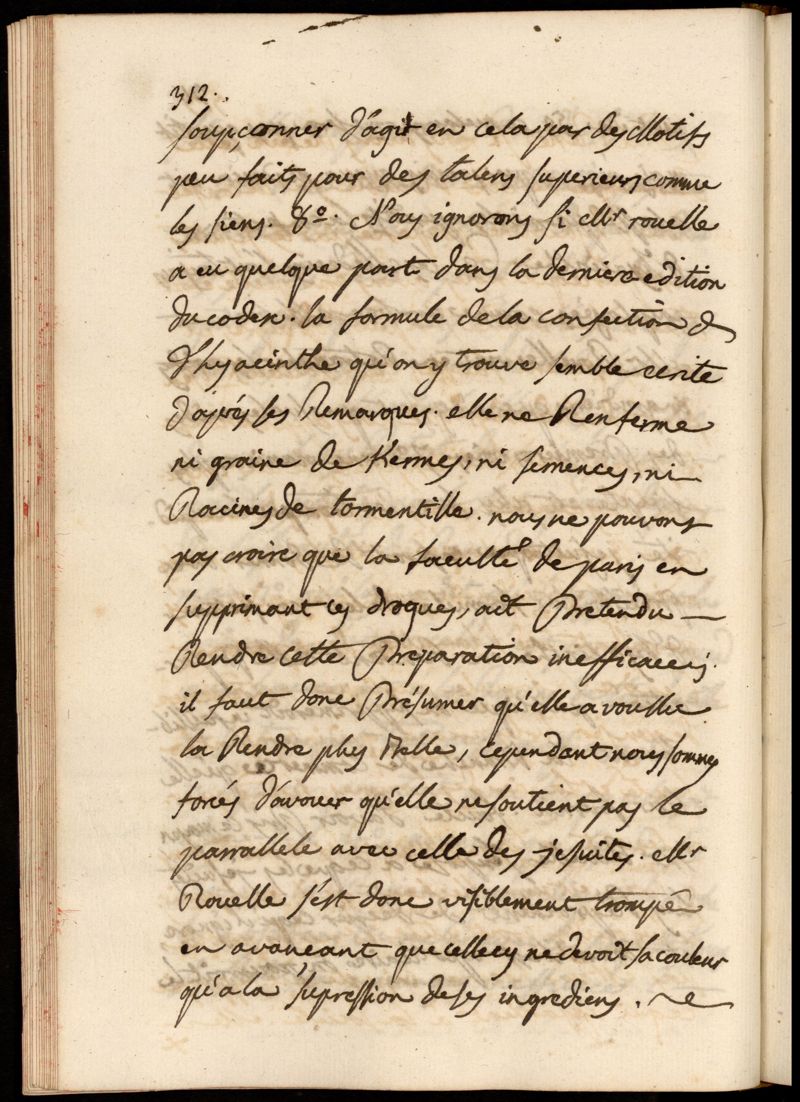 312.
soupçonner d'agir en cela par des Motifs
peu faits pour des talens superieurs comme
les siens. 8º. Nous ignorons si Mr rouelle
a eu quelque part dans la derniere edition
du codex. la formule de la confection
d'hyacinthe qu'on y trouve semble ecrite
d'après ses Remarques. elle ne Renferme
ni graine de Kermes, ni semences, ni
Racines de tormentille. nous ne pouvons
pas croire que la faculté de paris en
supprimant ces drogues, ait Pretendu
Rendre cette Preparation inefficace
il faut donc Présumer qu'elle a voullu
la Rendre plus belle, cependant nous sommes
forcés d'avouer qu'elle ne soutient pas le
parrallele avec celle des jesuites. Mr
Rouelle s'est donc visiblement trompé
en avançant que cellecy ne devoit sa couleur
qu'a la supression de ses ingrediens.